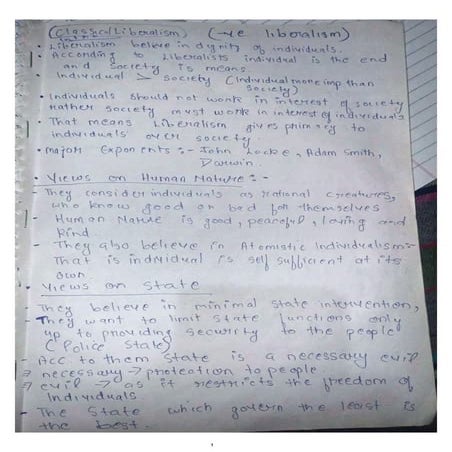 (Classical Liberalism) (-ve liberalism)
• Liberalism believe in dignity of individuals.
According to Liberalists individual is the end
and society is means
• Individual > society (Individual more imp than
society)
• Individuals should not work in interest of society
Rather society must work in interest of individuals
• That means Liberalism gives primacy to
individuals over society.
• Major Exponents :- John Locke, Adam Smith,
Darwin.
• Views on Human Nature :-
- They consider individuals as rational creatures,
who know good or bad for themselves
- Human Nature is good, peaceful, loving and
kind.
- They also believe in Atomistic Individualism :-
That is individual is self sufficient at its
own.
• Views on State
- They believe in minimal state intervention,
- They want to limit state functions only
up to providing security to the people
(Police State)
- Acc to them State is a necessary evil
necessary → protection to people.
evil → as it restricts the freedom of
Individuals
- The State which govern the least is
the best.